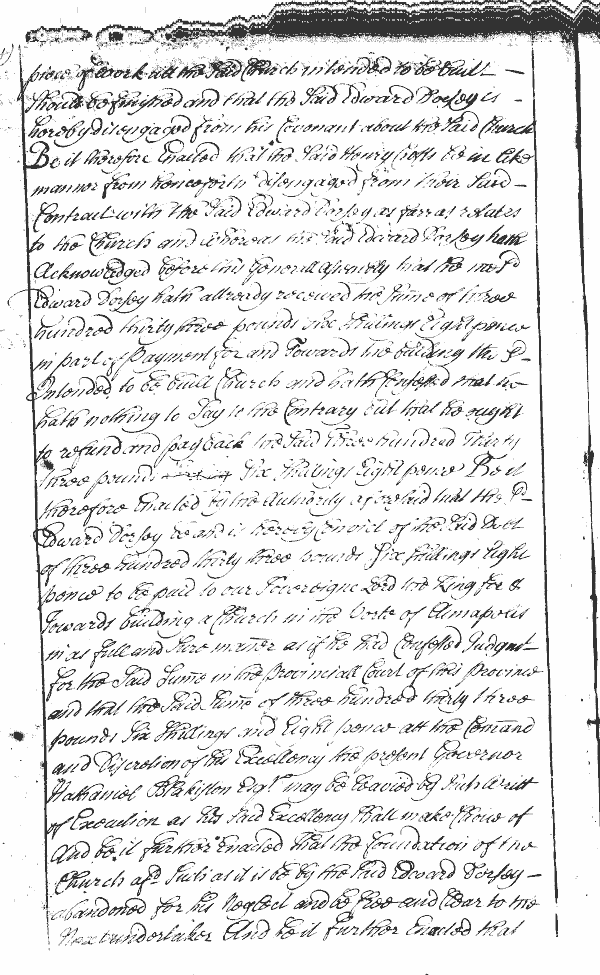 piece of work all the Said Church intended to be built —
should be finished and that the Said Edward Dorsey is -
hereby disengaged from his Covenant about the Said Church
Be it therefore Enacted that the Said Henry be in like
manner from henceforth disengaged from their Said —
Contract with the Said Edward Dorsey as farr as relates
to the Church and whereas the Said Edward Dorsey hath
Acknowledged before this Generall Assembly that he the sd
Edward Dorsey hath allready received the Sume of three
hundred thirty three pounds six Shillings Eight pence
in part of Payment for and Towards the building the Sd —
Intended to be built Church and hath Confessed that he
hath nothing to Say to the Contrary but that he ought
to refund and pay back the Said Three hundred Thirty
three pounds Six Shillings Eight pence Be it
therefore Enacted by the Authority aforesaid that the Sd —
Edward Dorsey be and is hereby Convict of the Said Debt
of three hundred thirty three pounds Six shillings Eight
pence to be paid to our Sovereigne Lord the King for &
Towards building a Church in the Porte of Annapolis
in as full and Sure maner as if he had Confessed Judgmt
for the Said Sume in the Provinciall Court of this Province
and that the Said Sume of three hundred thirty three
pounds Six Shillings and Eight pence att the Comand
and Discretion of his Excellency the present Governor
Nathaniel Blakiston Esqr may be leavied by Such Writt
of Execution as his Said Excellency Shall make Choice of
And be it further Enacted that the foundation of the
Church afd Such as it is be by the Said Edward Dorsey —
abandoned for his Neglect and be free and Clear to the
Next undertaker And be it further Enacted that